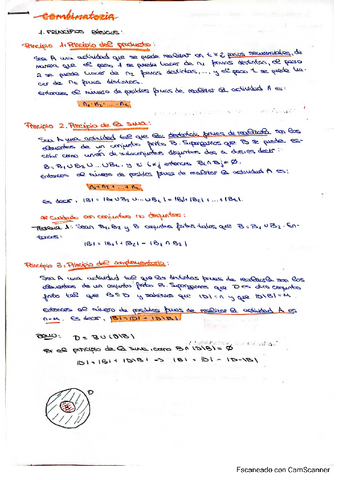 COMBINATORIA
1. PRINCIPIOS BÁSICOS:
Principio 1: Principio del producto:
Sea A una actividad que se puede realizar en t≥2 pasos secuenciales, de
manera que el paso 1 se puede hacer de n₁ formas distintas, el paso
2 se puede hacer de n₂ formas distintas, ..., y el paso t se puede ha-
cer de nt formas distintas.
entonces el número de posibles formas de realizar la actividad A es:
Principio 2. Principio de la suma:
Sea A una actividad tal que las distintas formas de realizarla son los
elementos de un conjunto finito B. Supongamos que B se puede es-
cribir como unión de subconjuntos disjuntos dos a dos, es decir:
entonces el número de posibles formas de realizar la actividad A es:
es decir,
* Cuidado con conjuntos no disjuntos:
Sean B₁, B₂ y B conjuntos finitos tales que B = B₁ ∪ B₂. En-
tonces:
|B| = |B₁| + |B₂| - |B₁ ∩ B₂|
Principio 3. Principio del complementario:
Sea A una actividad tal que las distintas formas de realizarla son los
elementos de un conjunto finito B. Supongamos que D es otro conjunto
finito tal que B ⊆ D y sabemos que |D| = n y que |D\B| = m.
entonces el número de posibles formas de realizar la actividad A es
n-m. Es decir, |B| = |D| - |D\B|
D = B ∪ (D\B)
Por el principio de la suma, como B ∩ (D\B) = ∅
|D| = |B| + |D\B| → |B| = |D| - |D\B|
D
B
Escaneado con CamScanner